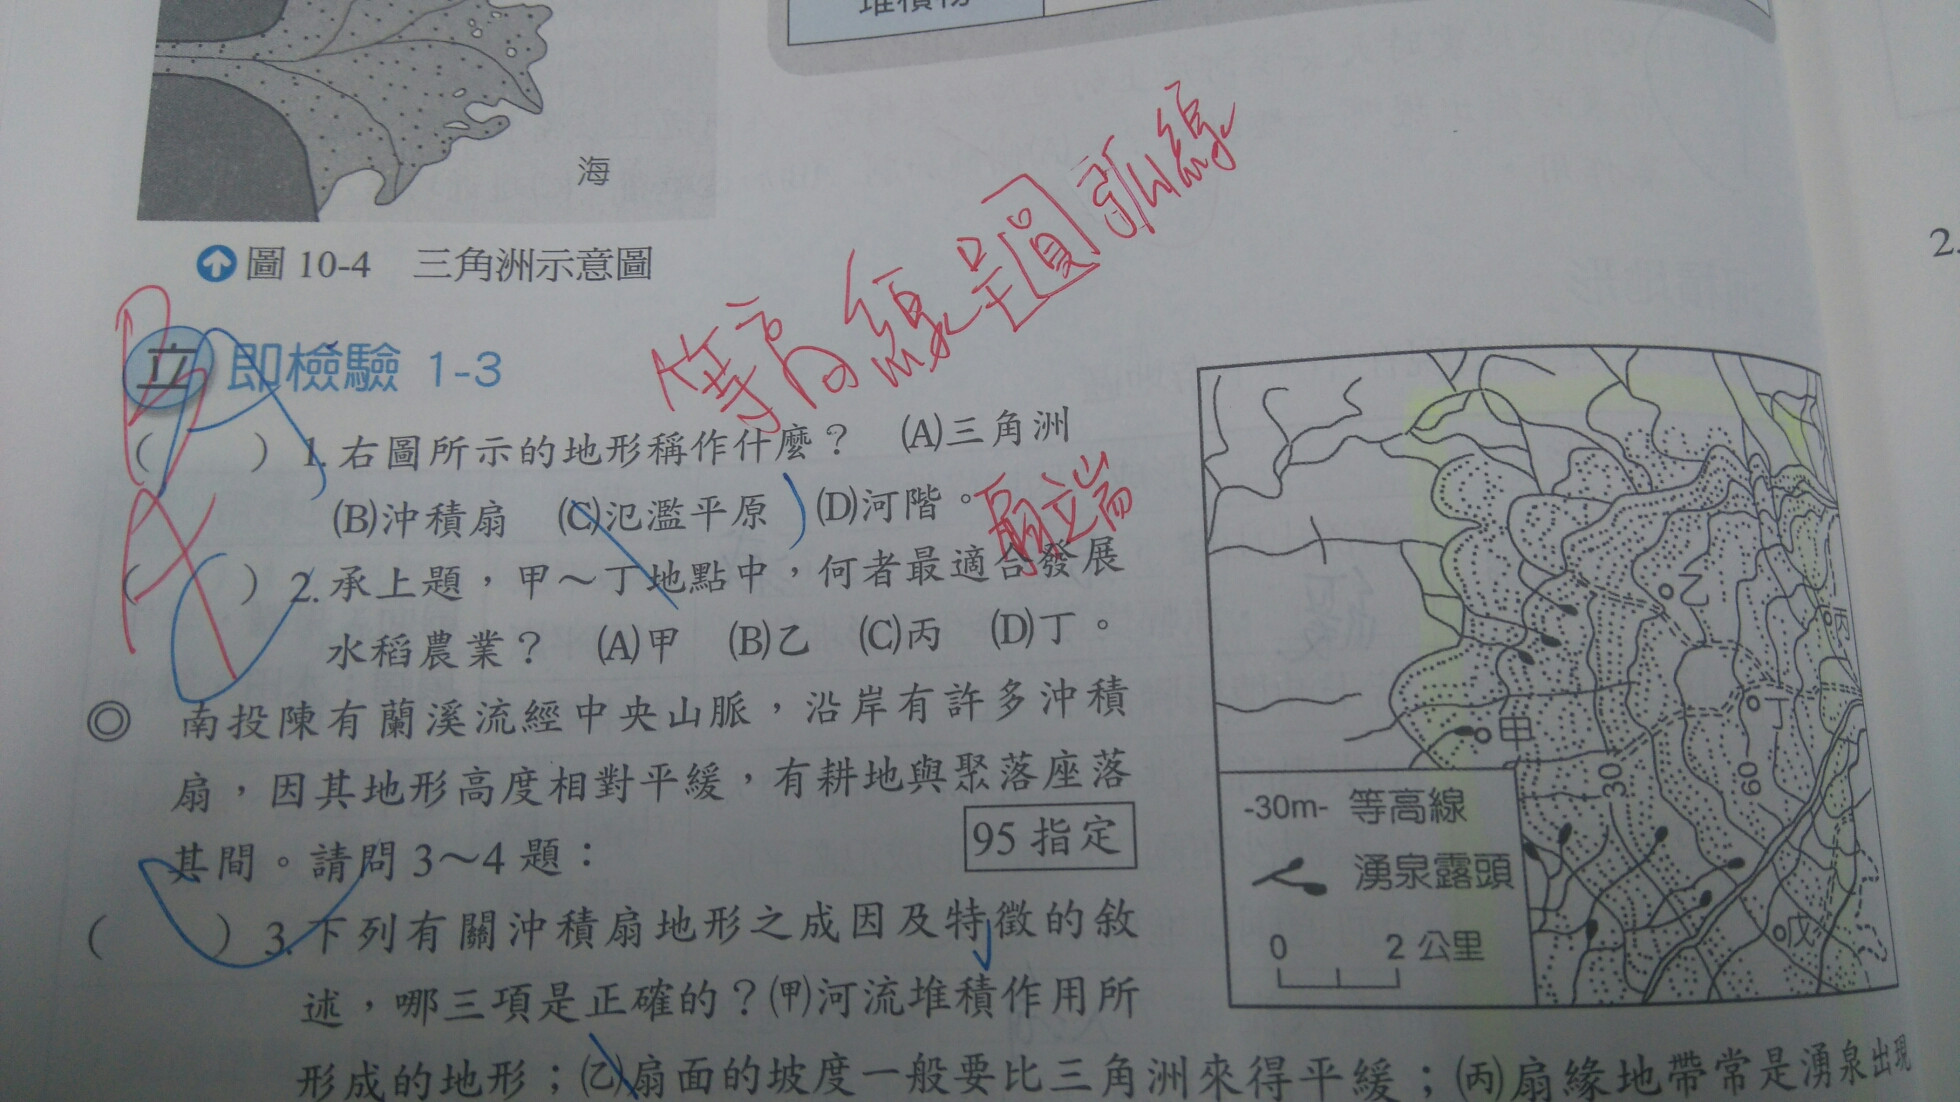 堆積物
海
圖 10-4 三角洲示意圖
等高線呈圓
訓練
立即檢驗 1-3
B
( ) 1. 右圖所示的地形稱作什麼? (A)三角洲
(B)沖積扇 (C)氾濫平原 (D)河階。
扇端
A
( ) 2. 承上題,甲～丁地點中,何者最適合發展
水稻農業? (A)甲 (B)乙 (C)丙 (D)丁。
◎ 南投陳有蘭溪流經中央山脈,沿岸有許多沖積
扇,因其地形高度相對平緩,有耕地與聚落座落
其間。請問 3～4 題:
95 指定
( ) 3. 下列有關沖積扇地形之成因及特徵的敘
述,哪三項是正確的?(甲)河流堆積作用所
形成的地形;(乙)扇面的坡度一般要比三角洲來得平緩;(丙)扇緣地帶常是湧泉出現
乙
丙
丁
甲
30
60
戊
-30m- 等高線
湧泉露頭
0 2 公里
2.